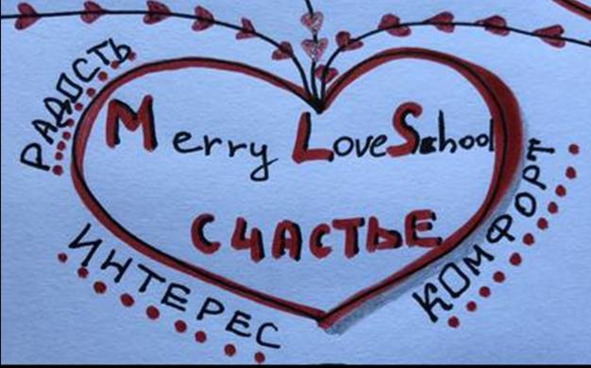 РАДОСТЬ
Merry LoveSchool
СЧАСТЬЕ
ИНТЕРЕС
КОМФОРТ